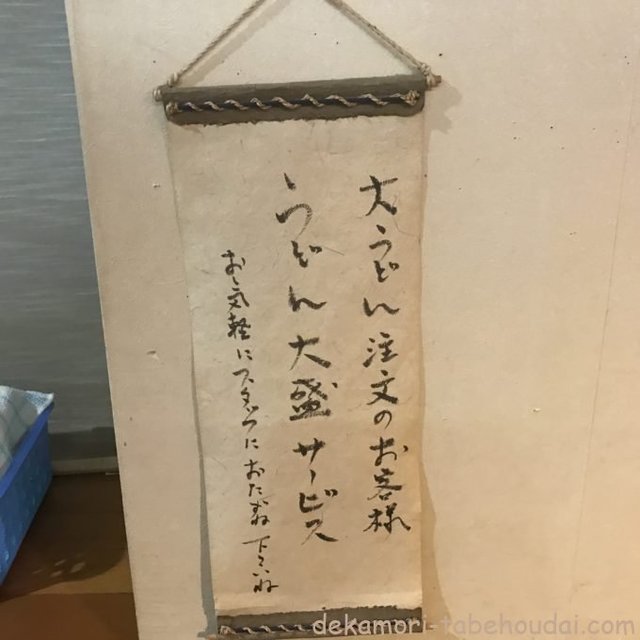 大うどん注文のお客様
うどん大盛サービス
お気軽にスタッフにおたずね下さいね
dekamori-tabehoudai.com